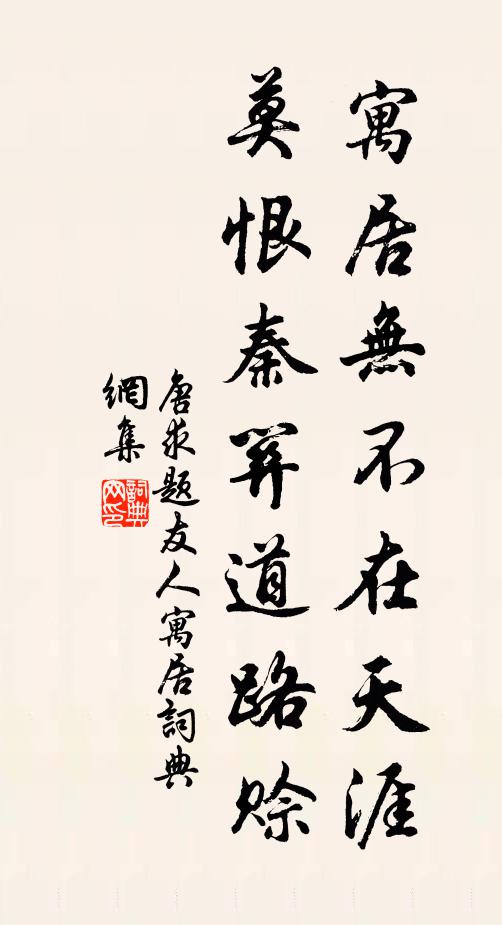 寓居無不在天涯
莫恨秦關道路賖
唐求题友人寓居詞典
網集
詞典
网印